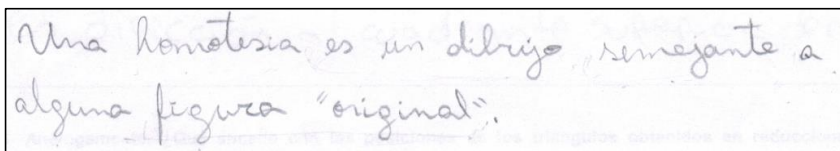 Una homotesia es un dibujo semejante a
alguna figura "original".